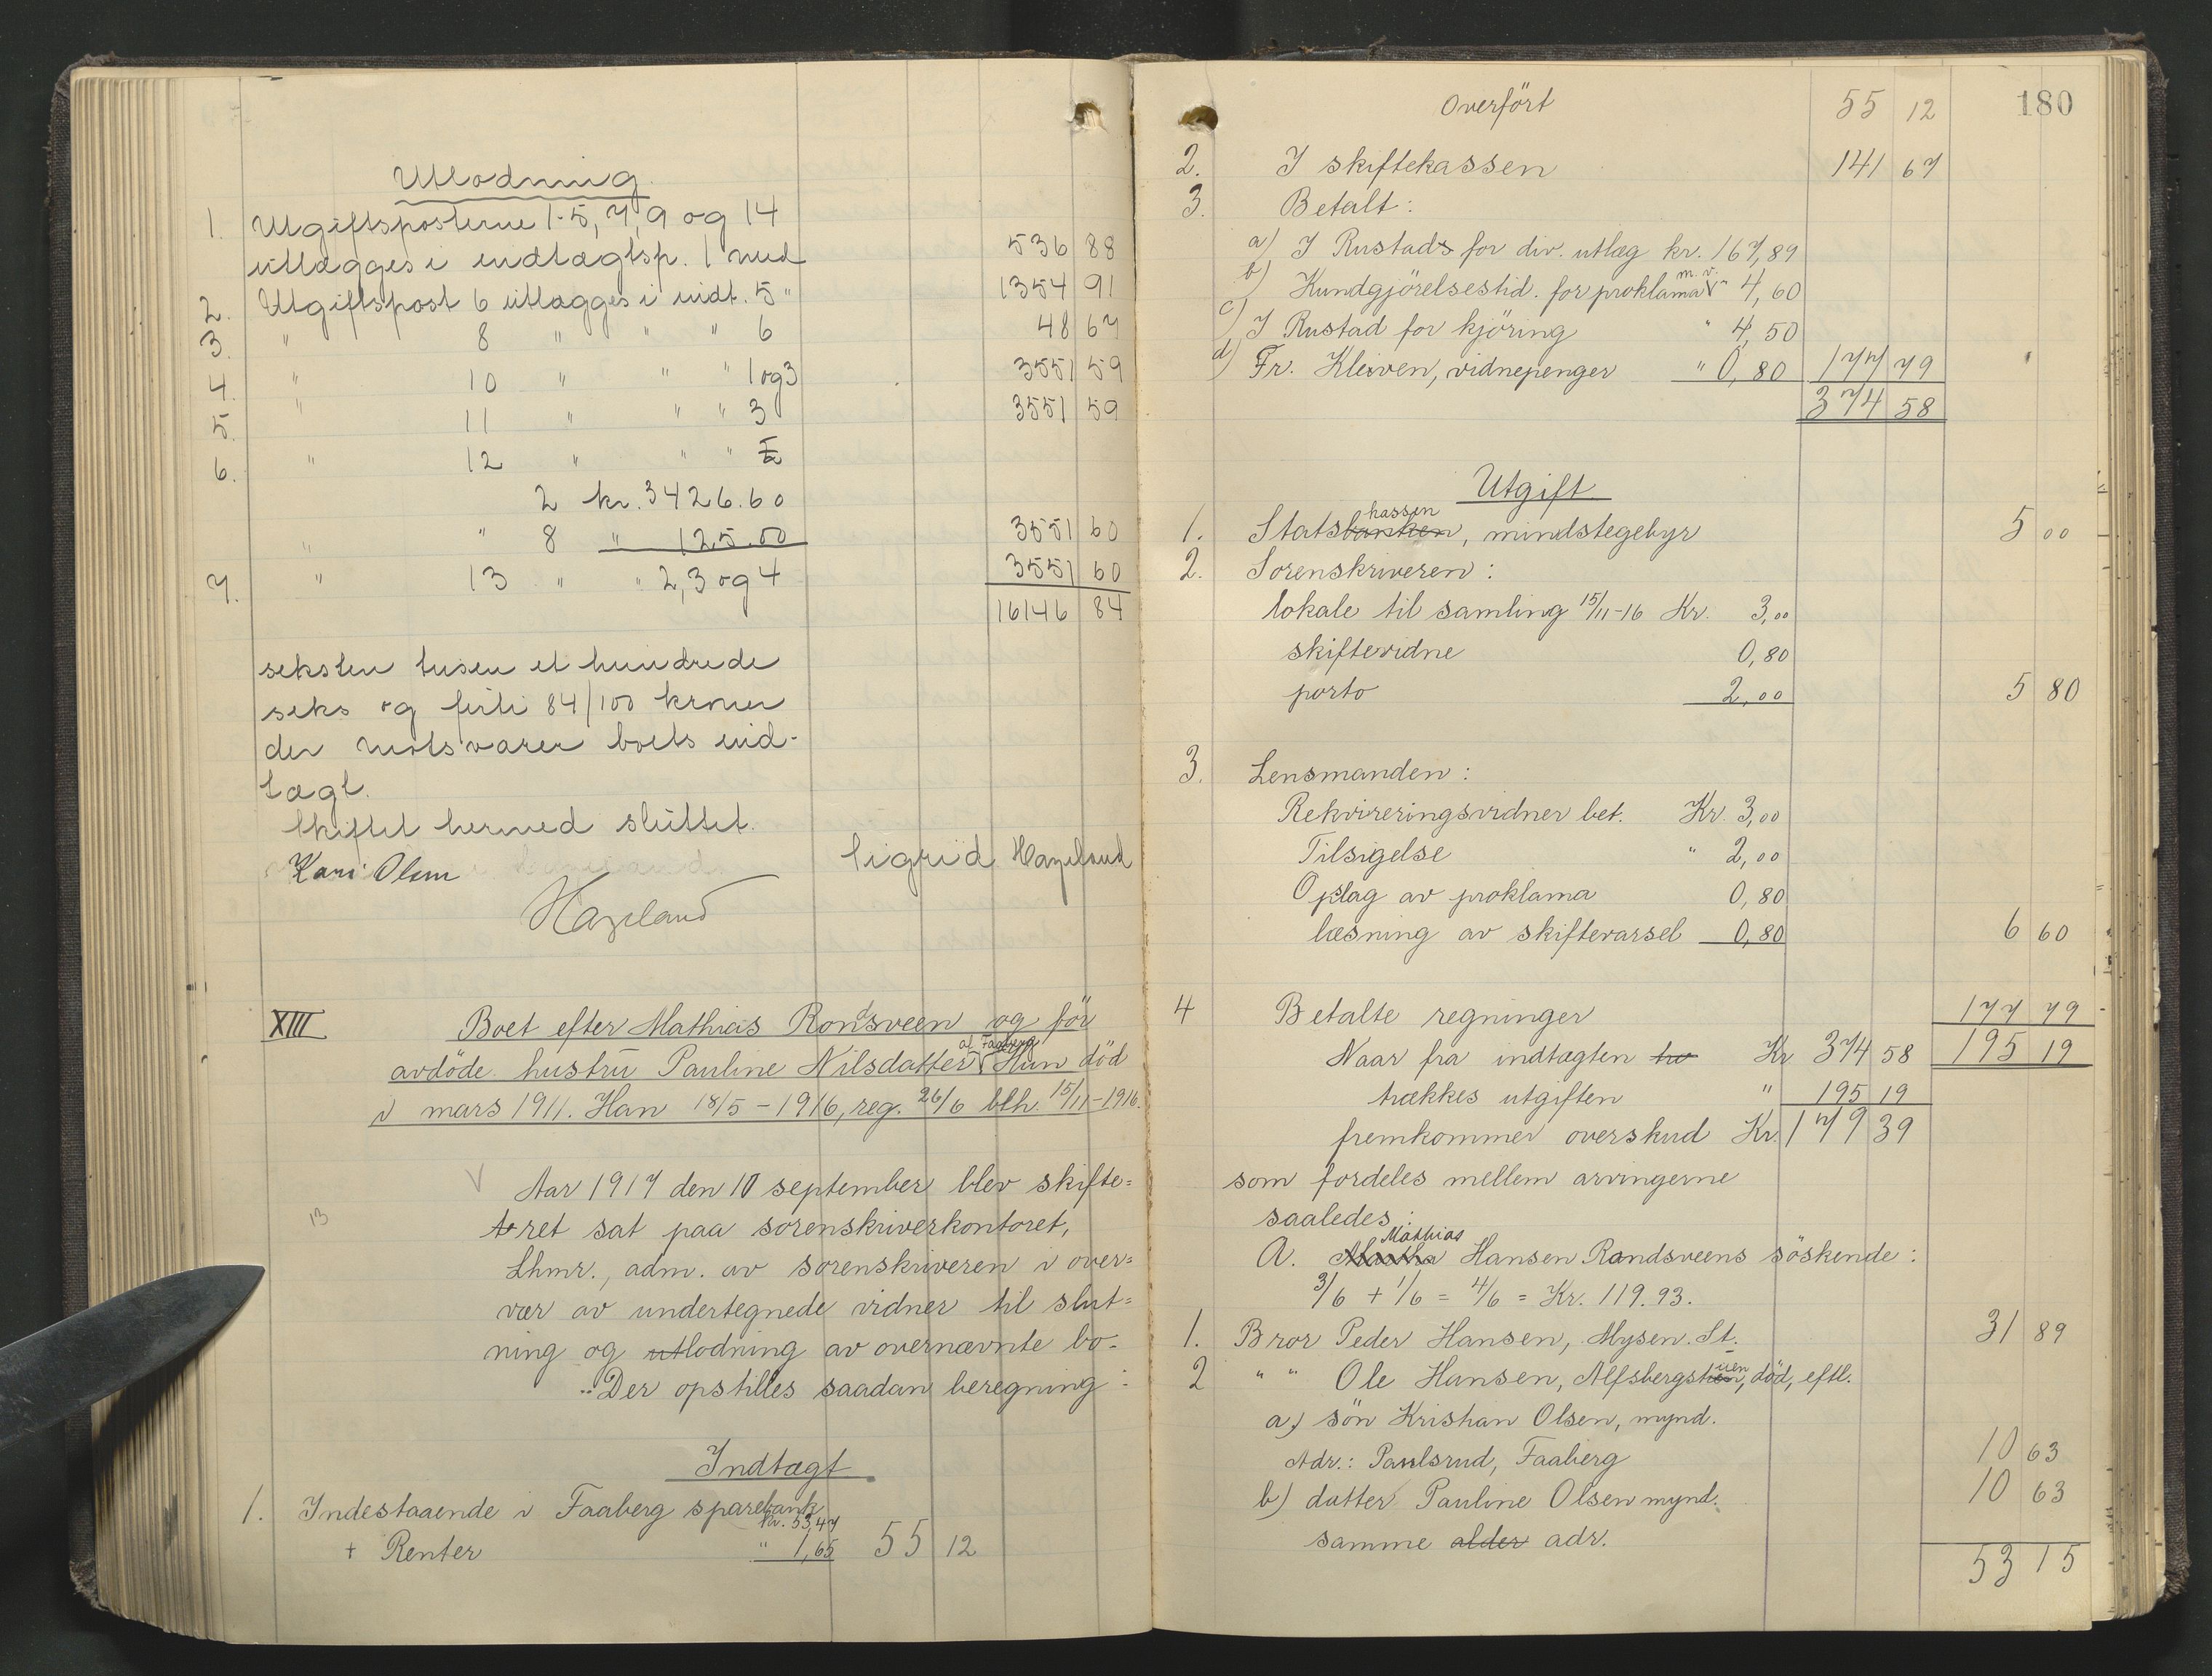 Utlodning
1. Utgiftsposterne 1-5, 7, 9 og 14
utlægges i indtægtsp. 1 med 536 88
2. Utgiftspost 6 utlægges i indt. 5 " 1354 91
3. " 8 " " " 6 48 67
4. " 10 " " " 1 og 3 3551 59
5. " 11 " " " 3 3551 59
6. " 12 " " "
2 kr. 3426.60
" " 8 " 125.00 3551 60
7. " 13 " " 2, 3 og 4 3551 60
16146 84
seksten tusen et hundrede
seks og firti 84/100 kroner
der motsvarer boets ind-
tægt.
Skiftet hermed sluttet.
Kari Olsen Sigrid Hazeland
Hazeland
XIII Boet efter Mathias Rondsveen og før
avdöde hustru Pauline Nilsdatter af Faaberg Hun död
i mars 1911. Han 18/5 - 1916, reg. 26/6 blh. 15/11-1916.
V Aar 1917 den 10 september blev skifte=
13 ret sat paa sorenskriverkontoret,
Lhmr., adm. av sorenskriveren i over=
vær av undertegnede vidner til slut=
ning og utlodning av overnævnte bo.
Der opstilles saadan beregning:
Indtægt
1. Indestaaende i Faaberg sparebank
kr. 53,47
+ Renter " 1,65 55 12
180
Overført 55 12
2. I skiftekassen 141 67
3. Betalt:
a) I Rustads for div. utlæg kr. 167,89
b) Kundgjörelsestid. for proklama m.v. " 4,60
c) I Rustad for kjöring " 4,50
d) Fr. Kleiven, vidnepenger " 0,80 177 79
374 58
Utgift
1. Statsbanken kassen, mindstegebyr 5 00
2. Sorenskriveren:
lokale til samling 15/11-16 Kr. 3,00
skiftevidne 0,80
porto 2,00 5 80
3. Lensmanden:
Rekvireringsvidner bet. Kr. 3,00
Tilsigelse " 2,00
Opslag av proklama 0,80
læsning av skiftevarsel 0,80 6 60
4 Betalte regninger 177 79
Naar fra indtægten tr Kr 374 58 195 19
trækkes utgiften " 195 19
fremkommer overskud Kr. 179 39
som fordeles mellem arvingerne
saaledes:
A. Mathias Hansen Randsveens söskende:
3/6 + 1/6 = 4/6 = Kr. 119.93.
1. Bror Peder Hansen, Mysen St. 31 89
2 " " Ole Hansen, Alfsbergstuen, död, eftl.
a) sön Kristian Olsen, mynd.
Adr.: Paulsrud, Faaberg 10 63
b) datter Pauline Olsen mynd. 10 63
samme alder adr.
53 15